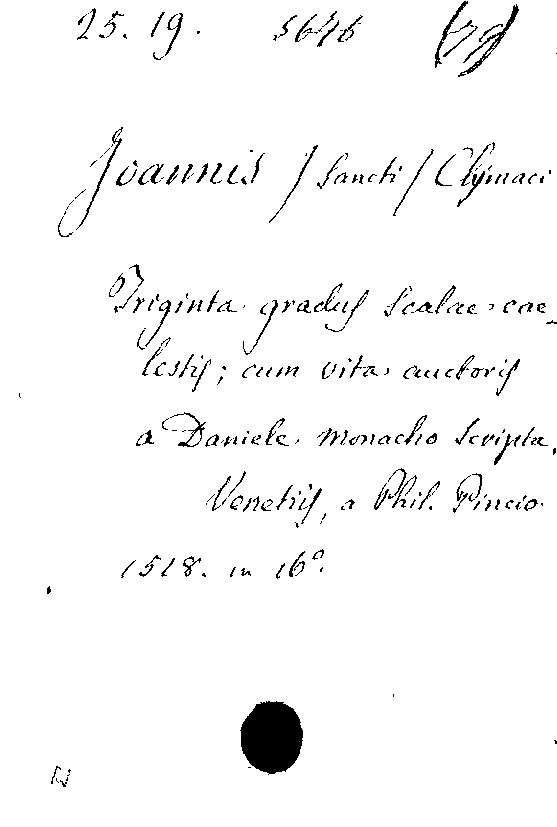 25. 19. 5646 (79)
Joannis / Sancti / Clymaci
Triginta gradus scalae cae-
lestis; cum vita auctoris
a Daniele monacho scripta.
Venetiis, a Phil. Pincio
1518. in 16°.